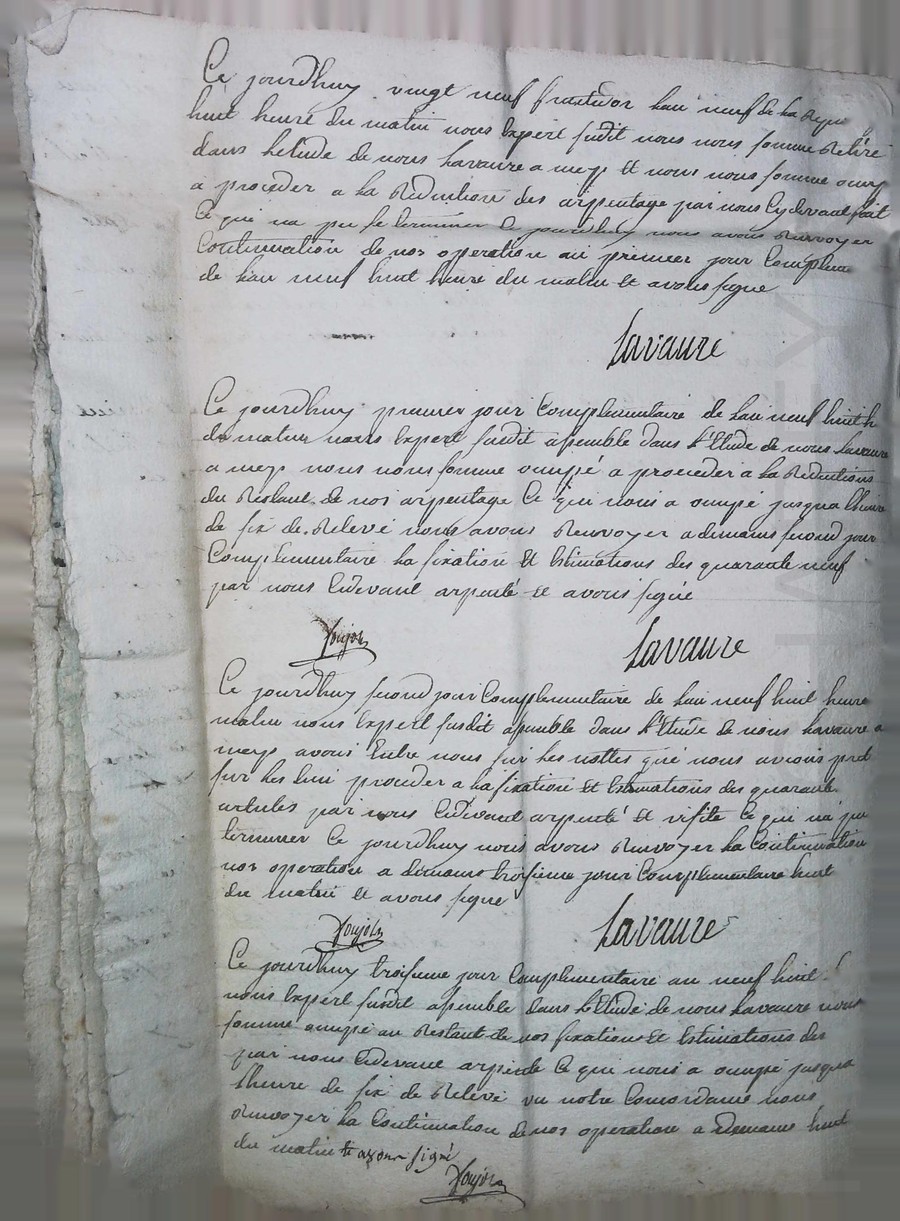 Ce jourdhuy vingt neuf fructidor lan neuf de la Repu
huit heure du matin nous Expert susdit nous nous somme Retiré
dans letude de nous Lavaure a mey et nous nous somme ocupé
a proceder a la Reduction des arpentage par nous cydevant fait
Ce qui na peu se terminer Ce jourdhuy nous avons Renvoyer
Continuation de nos operation au premier jour Complem
de lan neuf huit heure du matin et avons signe
Lavaure
Ce jourdhuy premier jour Complementaire de lan neuf huit h
du matin nous Expert susdit assemblé dans l'Etude de nous Lavaure
a mey nous nous somme ocupé a proceder a la Reductions
du Restant de nos arpentage Ce qui nous a ocupé jusqua lheure
de six de Relevé nous avons Renvoyer a demains second jour
Complementaire la fixation et Estimations des quarante neuf
par nous Cidevant arpenté et avons signé
Toujon Lavaure
Ce jourdhuy second jour Complementaire de lan neuf huit heure
matin nous Expert susdit assemblé dans l'Etude de nous Lavaure a
meyp avons Entre nous sur les nottes que nous avions prd
sur les lieu proceder a la fixation et Estimations des quarante
articles par nous Cidevant arpenté et visite Ce qui na pu
terminer Ce jourdhuy nous avons Renvoyer la Continuation
nos operation a demain troisieme jour Complementaire huit
du matin et avons signe
Toujon Lavaure
Ce jourdhuy troisieme jour Complementaire an neuf huit h
nous Expert susdit assemblé dans l'Etude de nous Lavaure nous
somme ocupé au Restant de nos fixations et Estimations des
par nous Cidevant arpenté Ce qui nous a ocupé jusqua
lheure de six de Relevé vu notre Concordance nous
Renvoyer la Continuation de nos operation a Demains huit
du matin et avons signé
Toujon